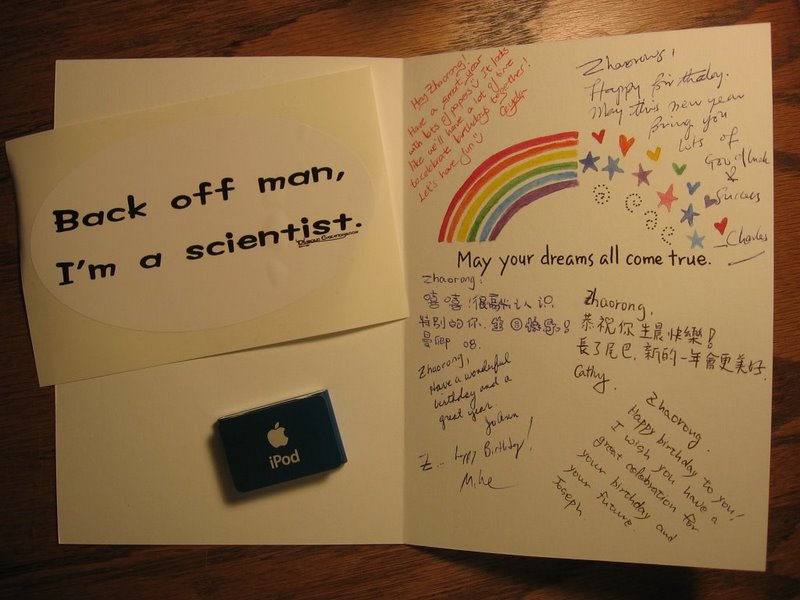 Back off man,
I'm a scientist.
iPod
Hey Zhaorong!
Have a sweet year
with lots of papers :) It looks
like we'll have a lot of time
to celebrate birthdays together!
Let's have fun :)
Zhaorong,
Happy birthday.
May this new year
bring you
lots of
Good luck
&
Success
Charles
May your dreams all come true.
Zhaorong:
嘻嘻!很高兴认识
特别的你. 生日快乐!
08.
Zhaorong,
Have a wonderful
birthday and a
great year.
JoAnn
Z... Happy Birthday!
Mike
Zhaorong,
恭祝你生晨快樂!
長了尾巴, 新的一年會更美好.
Cathy.
Zhaorong.
Happy birthday to you!
I wish you have a
great celebration for
your birthday and
your future.
Joseph